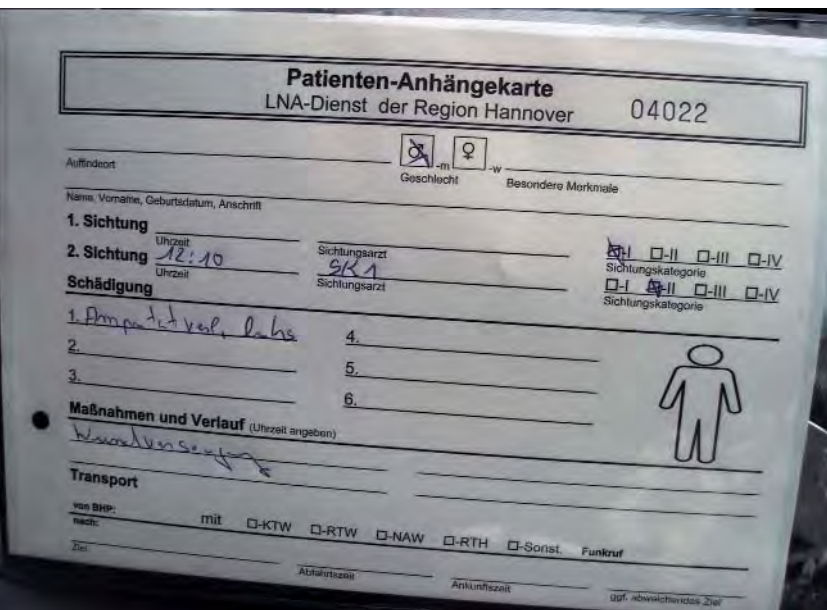 Patienten-Anhängekarte
LNA-Dienst der Region Hannover 04022
♂ -m ♀ -w
Auffindeort Geschlecht Besondere Merkmale
Name, Vorname, Geburtsdatum, Anschrift
1. Sichtung
Uhrzeit Sichtungsarzt ☒-I ☐-II ☐-III ☐-IV
Sichtungskategorie
2. Sichtung 12:10 SK1
Uhrzeit Sichtungsarzt ☐-I ☒-II ☐-III ☐-IV
Sichtungskategorie
Schädigung
1. 4.
2. 5.
3. 6.
Maßnahmen und Verlauf (Uhrzeit angeben)
Wundversorgung
Transport
von BHP:
nach: mit ☐-KTW ☐-RTW ☐-NAW ☐-RTH ☐-Sonst. Funkruf
Ziel Abfahrtszeit Ankunftszeit ggf. abweichendes Ziel